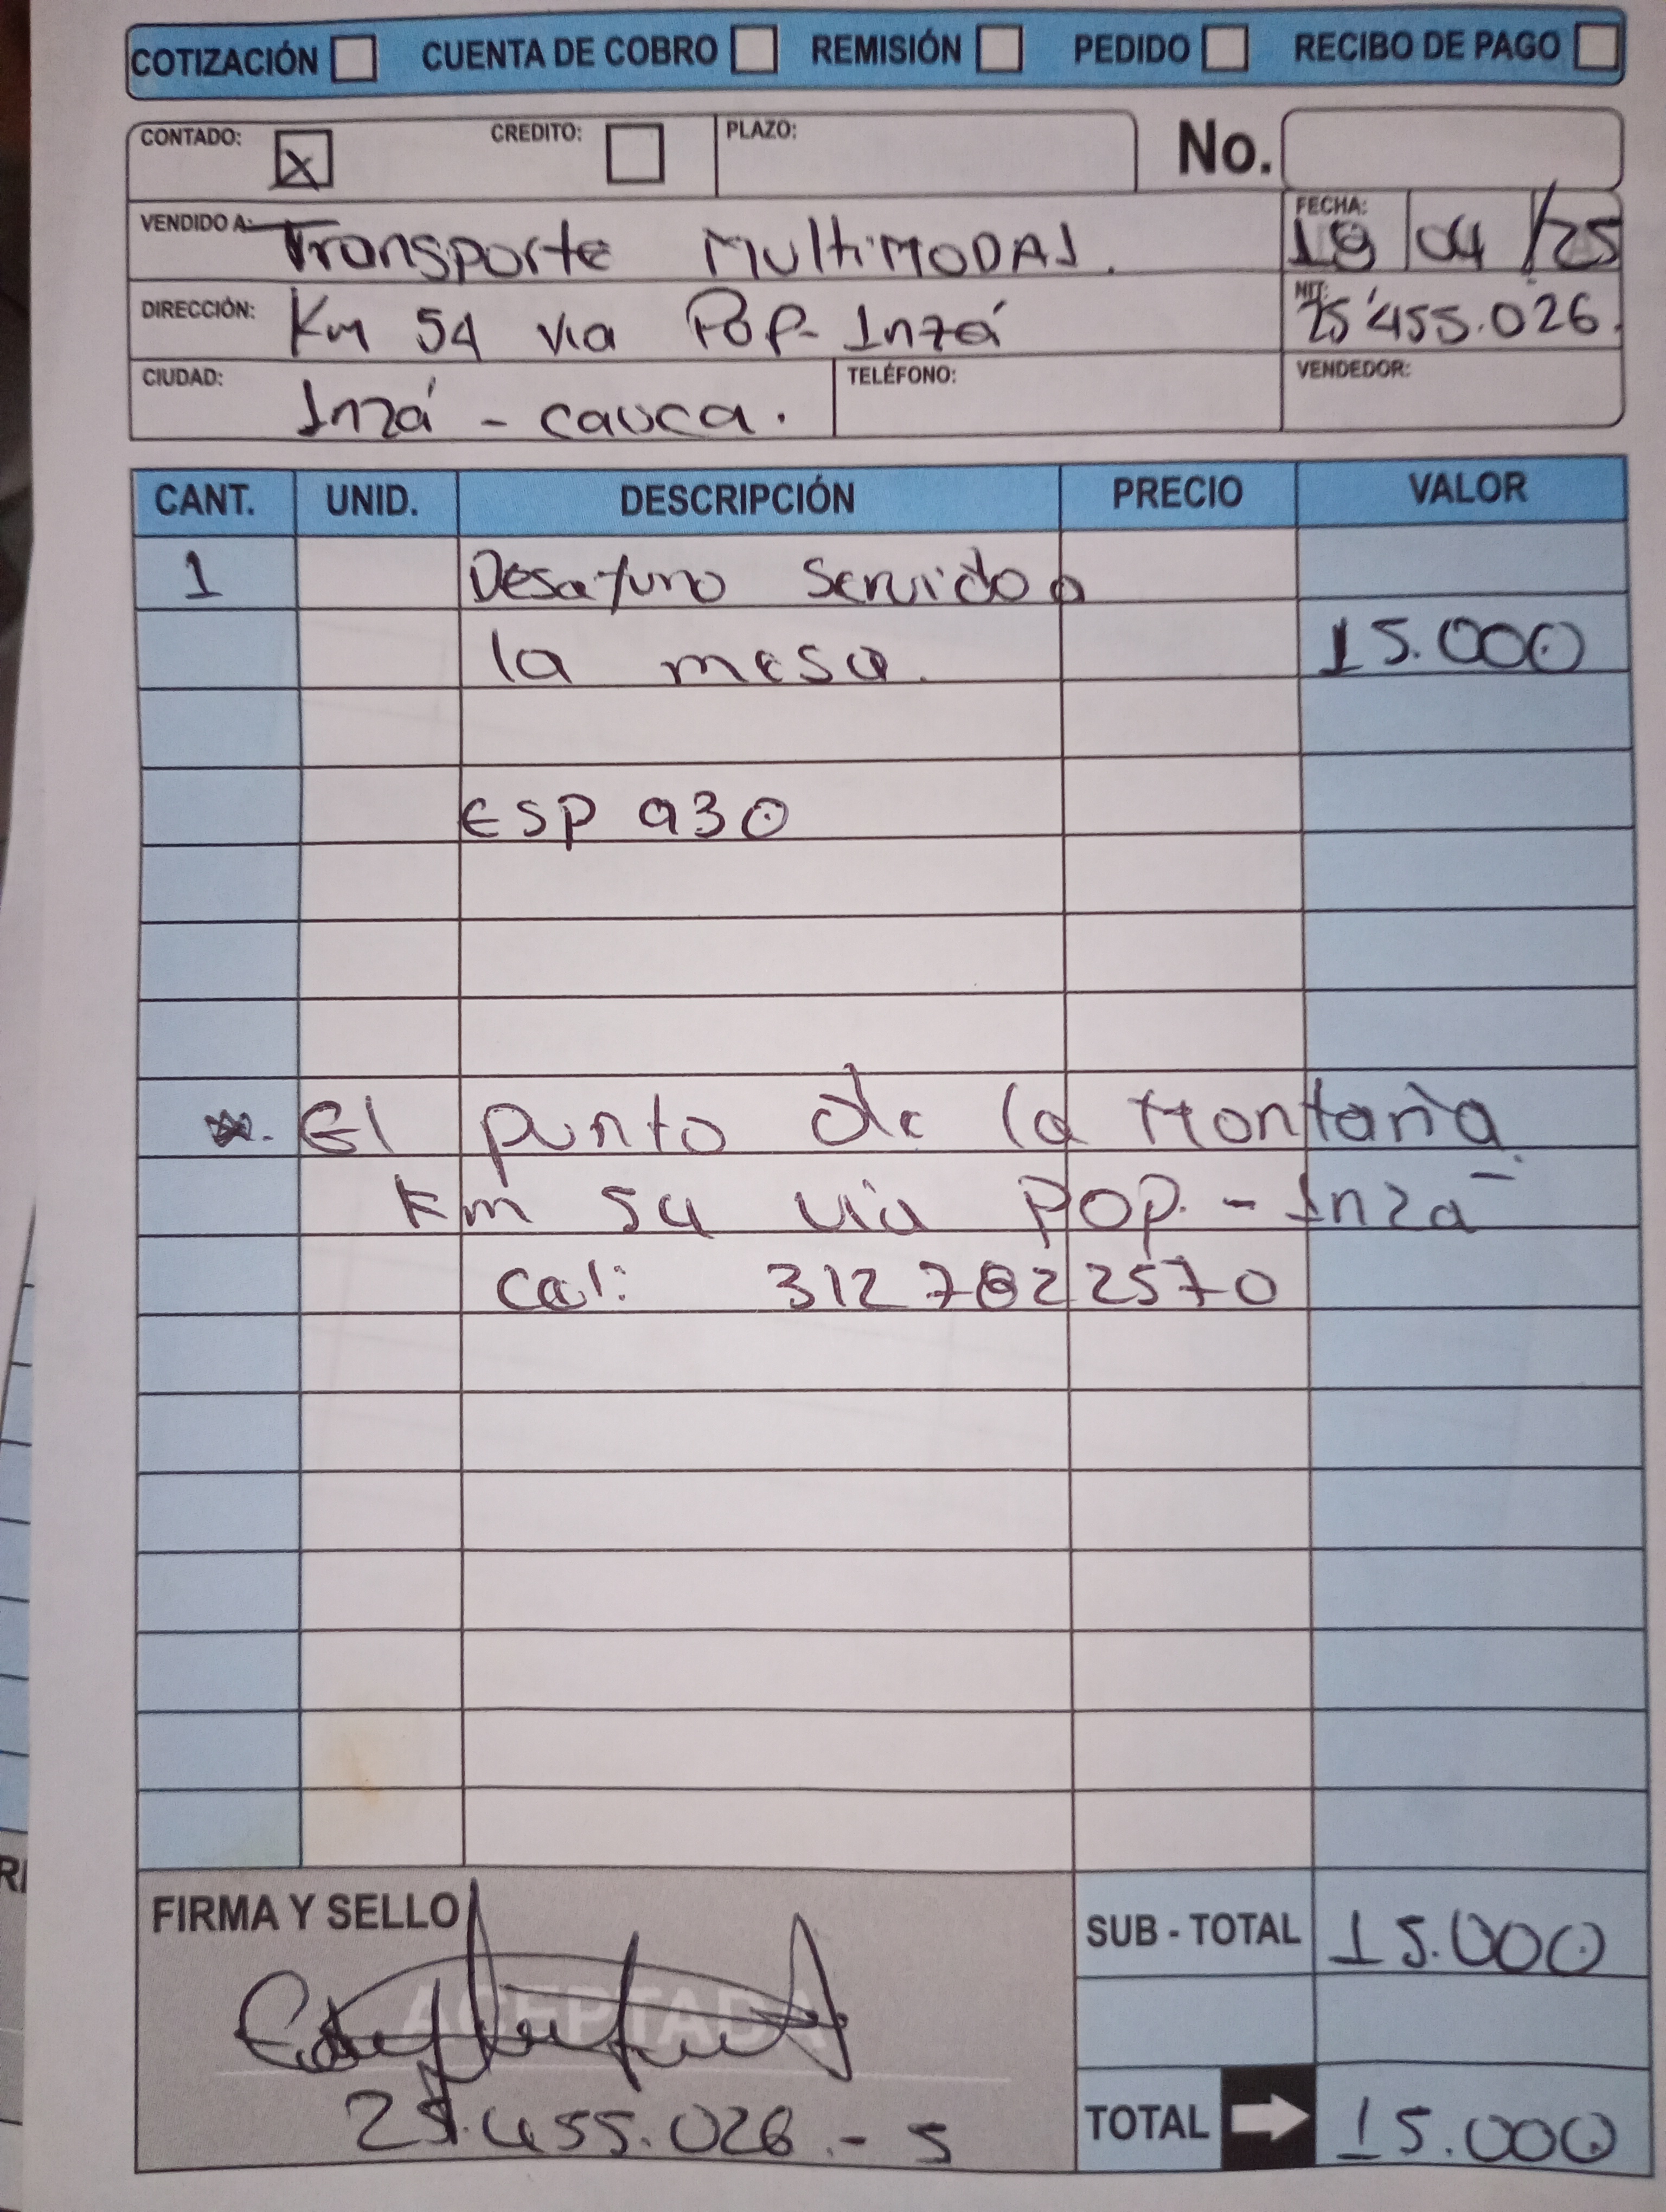 COTIZACIÓN CUENTA DE COBRO REMISIÓN PEDIDO RECIBO DE PAGO
CONTADO: X CREDITO: PLAZO: No.
VENDIDO A: Transporte MultiMODAl. FECHA: 19/04/25
DIRECCIÓN: Km 54 via Pop-Inzá NIT: 25'455.026.
CIUDAD: Inzá - cauca. TELÉFONO: VENDEDOR:
CANT. UNID. DESCRIPCIÓN PRECIO VALOR
1 Desayuno servido a
la mesa. 15.000
ESP 930
El punto de la Montaña
Km 54 via Pop. - Inzá
Cel: 312 782 2570
FIRMA Y SELLO SUB - TOTAL 15.000
ACEPTADA
25.455.026.-5 TOTAL 15.000
RI